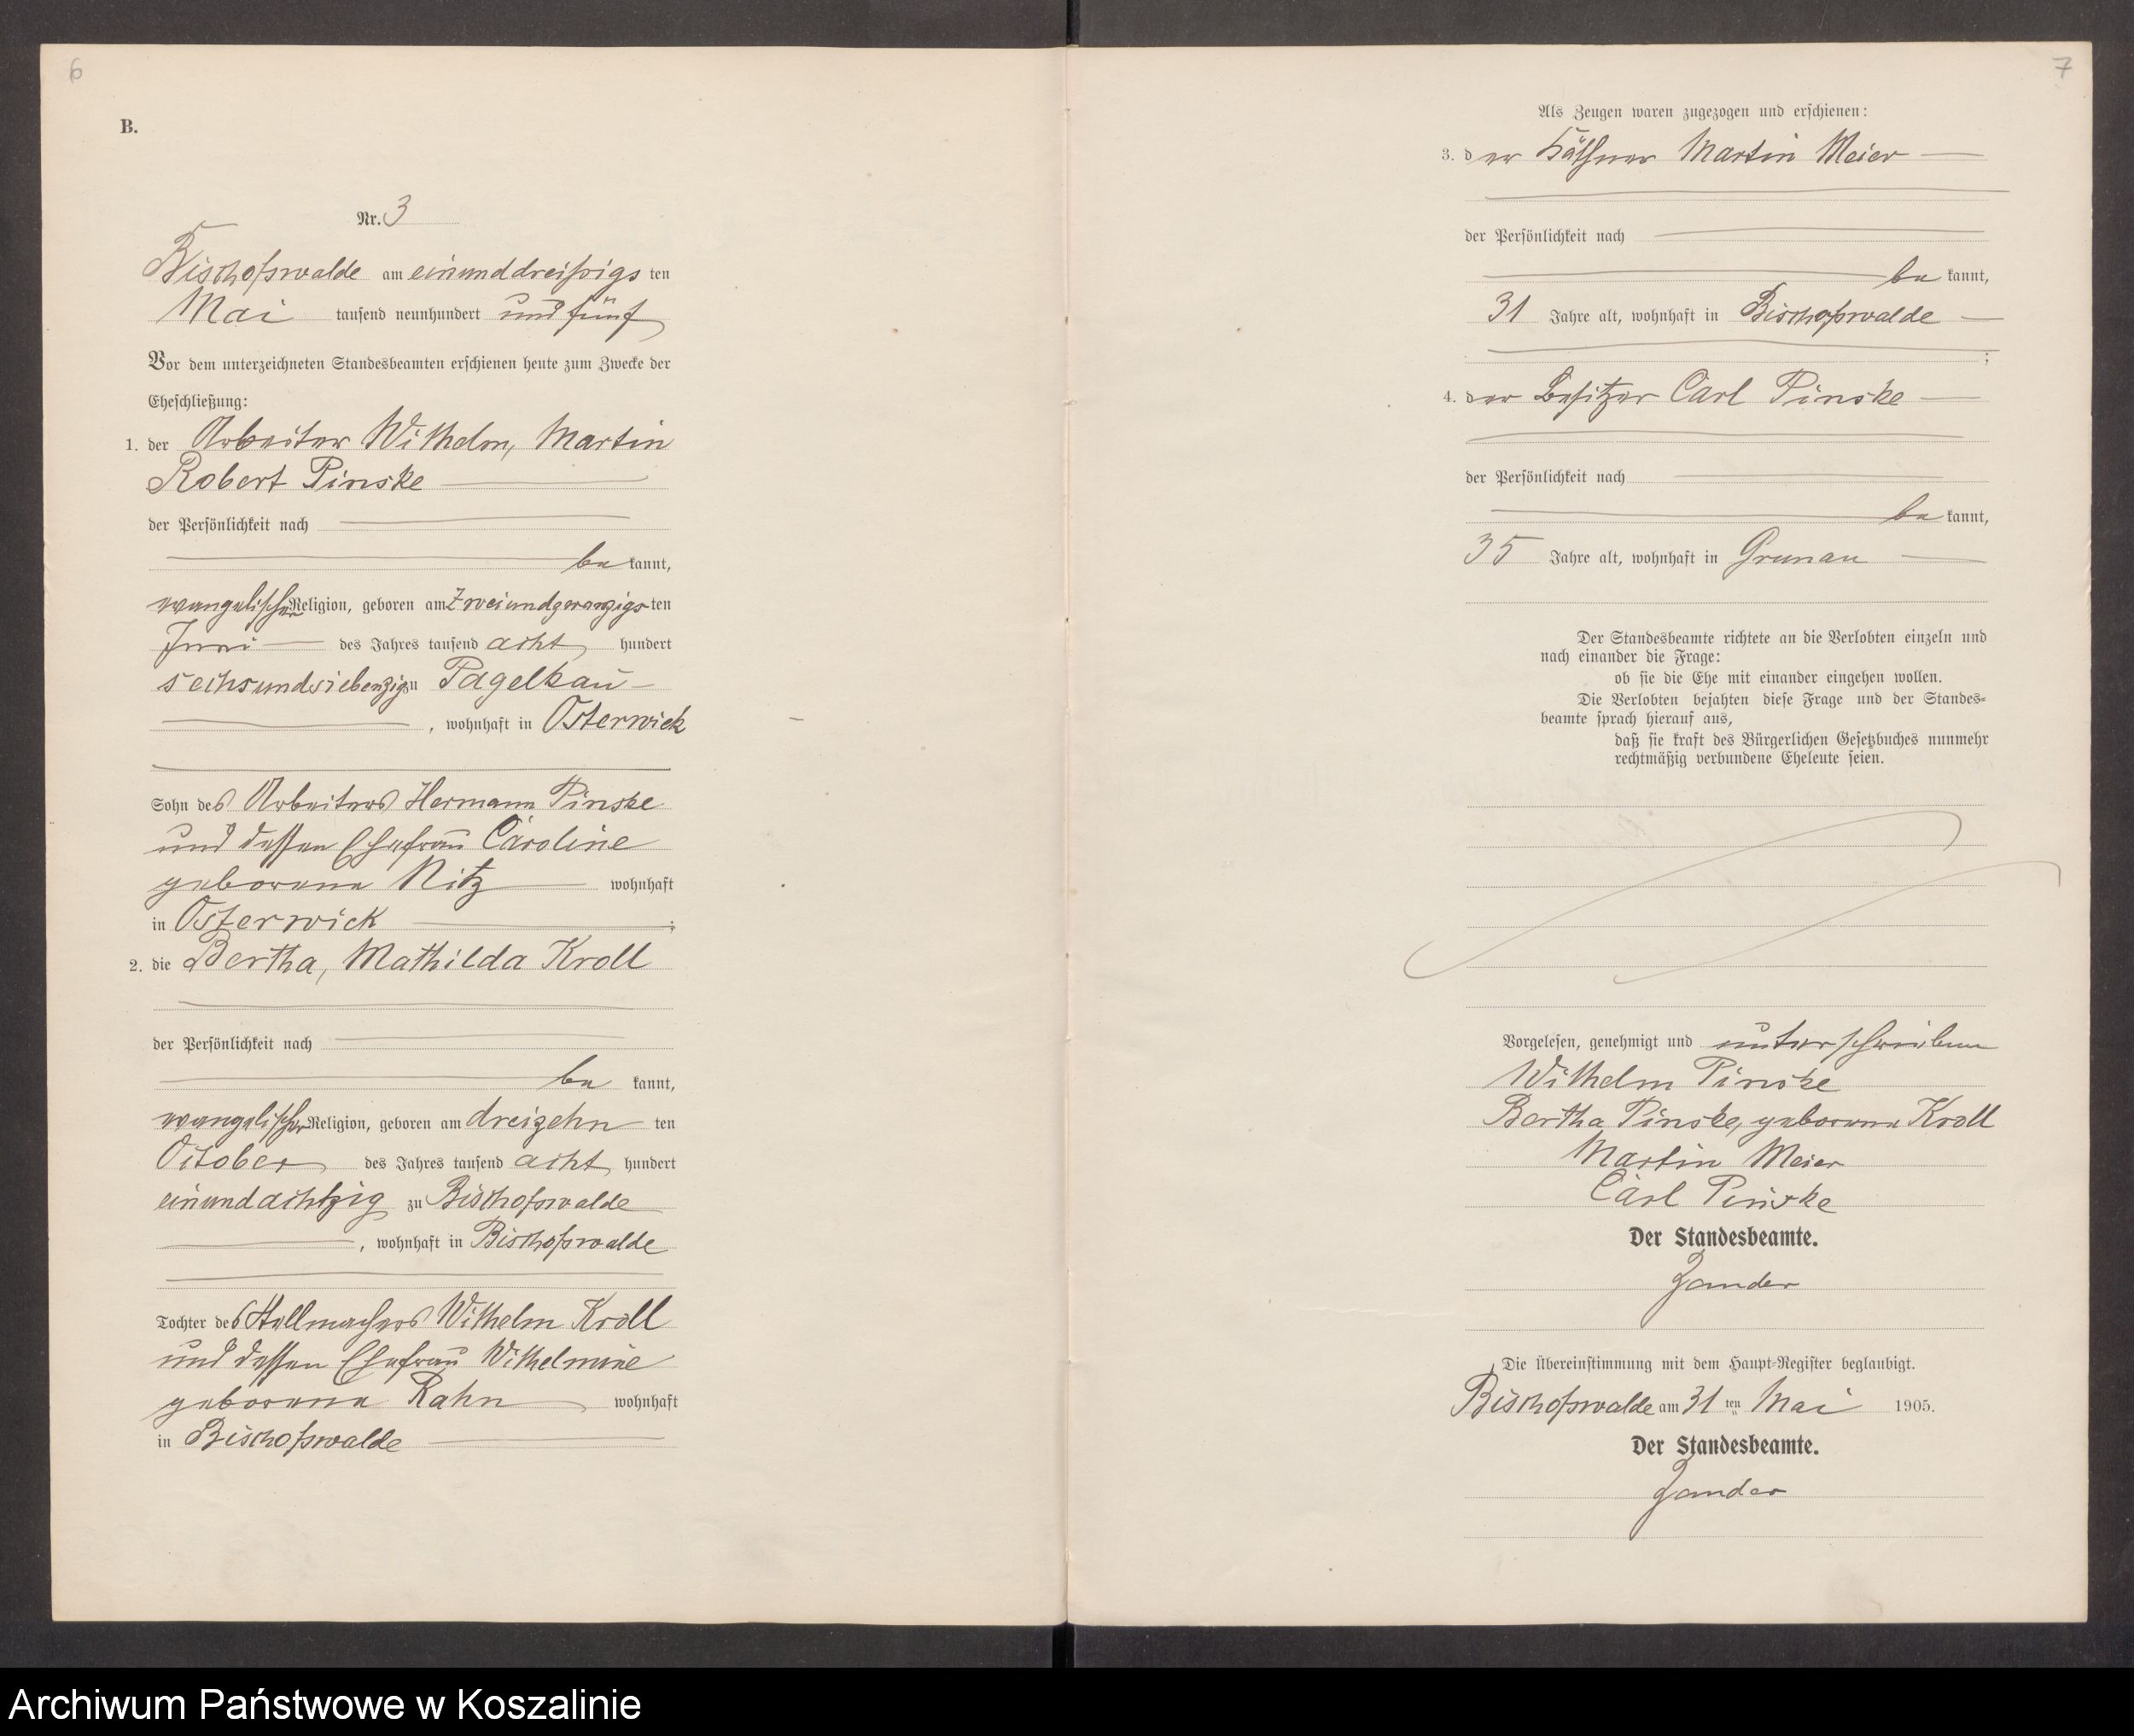 6
B.
Nr. 3
Bischofswalde am einunddreißigsten
Mai tausend neunhundert und fünf
Vor dem unterzeichneten Standesbeamten erschienen heute zum Zwecke der
Eheschließung:
1. der Arbeiter Wilhelm, Martin
Robert Pinske
der Persönlichkeit nach
be kannt,
evangelischer Religion, geboren am zweiundzwanzigsten
Juni des Jahres tausend acht hundert
sechsundsiebenzig zu Pagelkau
, wohnhaft in Osterwick
Sohn des Arbeiters Hermann Pinske
und dessen Ehefrau Caroline
geborene Nitz wohnhaft
in Osterwick ;
2. die Bertha, Mathilda Kroll
der Persönlichkeit nach
be kannt,
evangelischer Religion, geboren am dreizehn ten
October des Jahres tausend acht hundert
einundachtzig zu Bischofswalde
, wohnhaft in Bischofswalde
Tochter des Stellmachers Wilhelm Kroll
und dessen Ehefrau Wilhelmine
geborene Rahn wohnhaft
in Bischofswalde
7
Als Zeugen waren zugezogen und erschienen:
3. der Käthner Martin Meier
der Persönlichkeit nach
be kannt,
31 Jahre alt, wohnhaft in Bischofswalde
;
4. der Besitzer Carl Pinske
der Persönlichkeit nach
be kannt,
35 Jahre alt, wohnhaft in Grunau
Der Standesbeamte richtete an die Verlobten einzeln und
nach einander die Frage:
ob sie die Ehe mit einander eingehen wollen.
Die Verlobten bejahten diese Frage und der Standes-
beamte sprach hierauf aus,
daß sie kraft des Bürgerlichen Gesetzbuches nunmehr
rechtmäßig verbundene Eheleute seien.
Vorgelesen, genehmigt und unterschrieben
Wilhelm Pinske
Bertha Pinske, geborene Kroll
Martin Meier
Carl Pinske
Der Standesbeamte.
Zander
Die Übereinstimmung mit dem Haupt-Register beglaubigt.
Bischofswalde am 31 ten Mai 1905.
Der Standesbeamte.
Zander
Archiwum Państwowe w Koszalinie